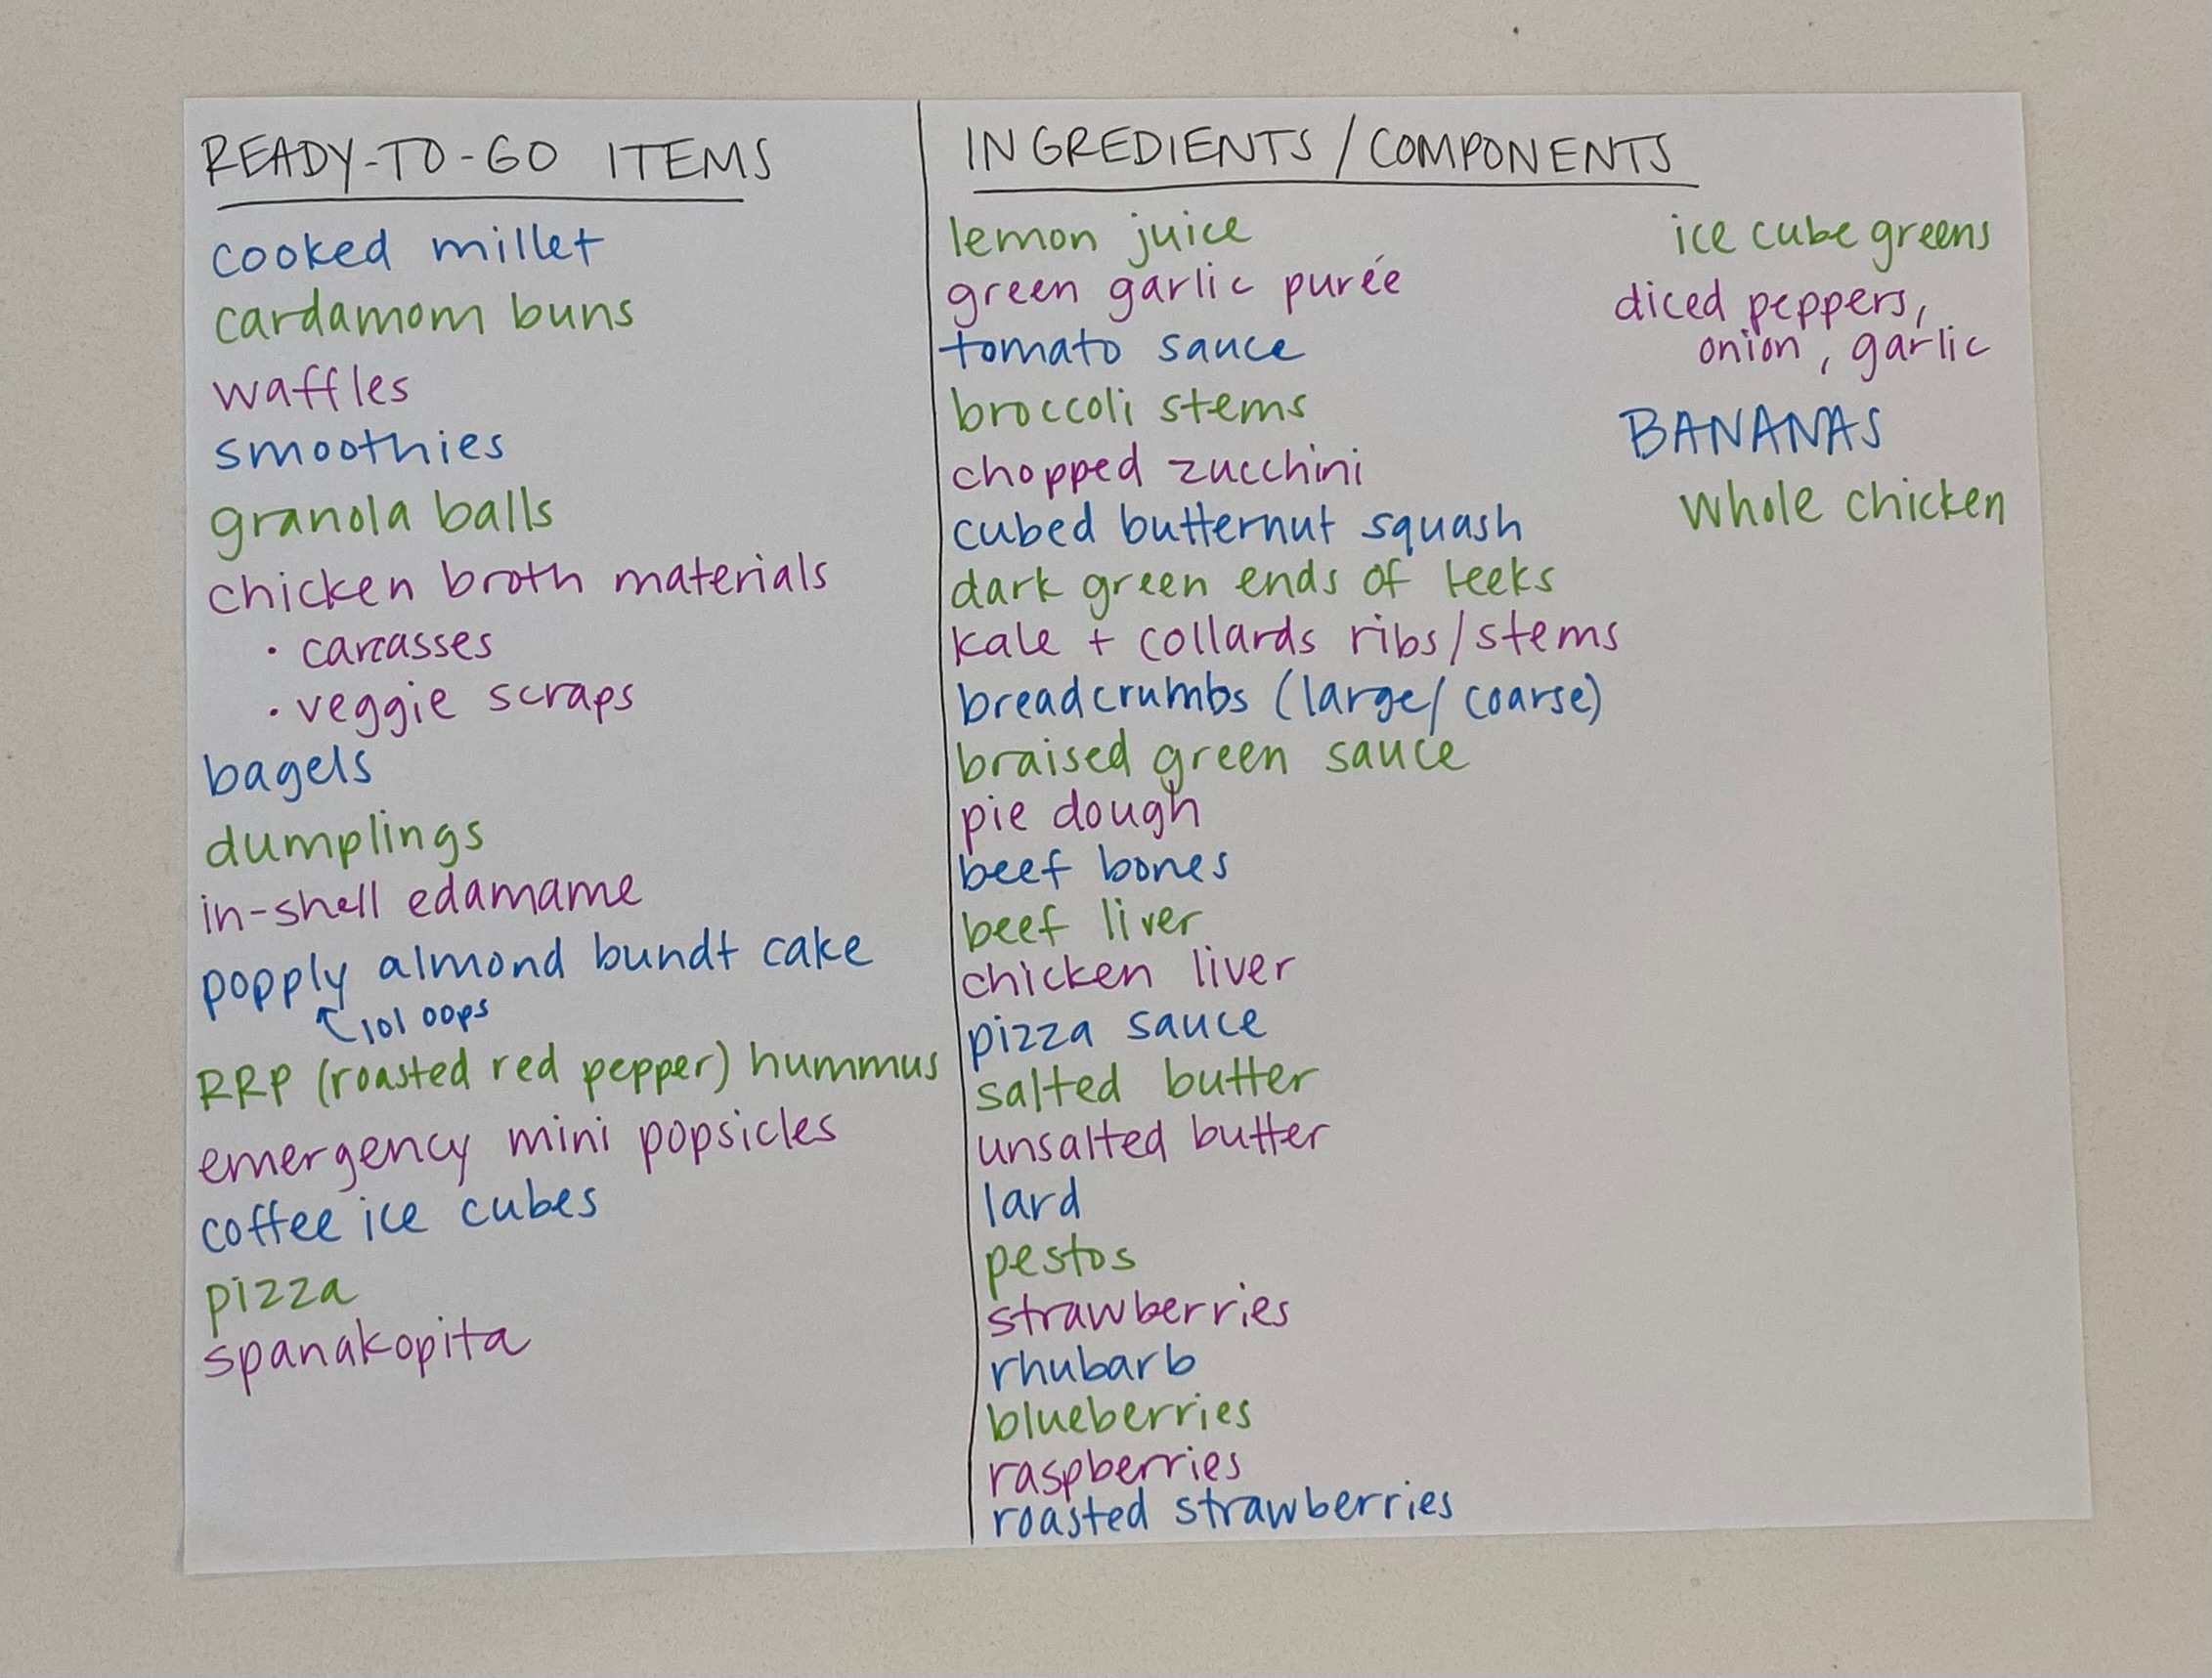 READY-TO-GO ITEMS
cooked millet
cardamom buns
waffles
smoothies
granola balls
chicken broth materials
• carcasses
• veggie scraps
bagels
dumplings
in-shell edamame
popply almond bundt cake
lol oops
RRP (roasted red pepper) hummus
emergency mini popsicles
coffee ice cubes
pizza
spanakopita
INGREDIENTS/COMPONENTS
lemon juice
green garlic purée
tomato sauce
broccoli stems
chopped zucchini
cubed butternut squash
dark green ends of leeks
kale + collards ribs/stems
breadcrumbs (large/coarse)
braised green sauce
pie dough
beef bones
beef liver
chicken liver
pizza sauce
salted butter
unsalted butter
lard
pestos
strawberries
rhubarb
blueberries
raspberries
roasted strawberries
ice cube greens
diced peppers,
onion, garlic
BANANAS
whole chicken